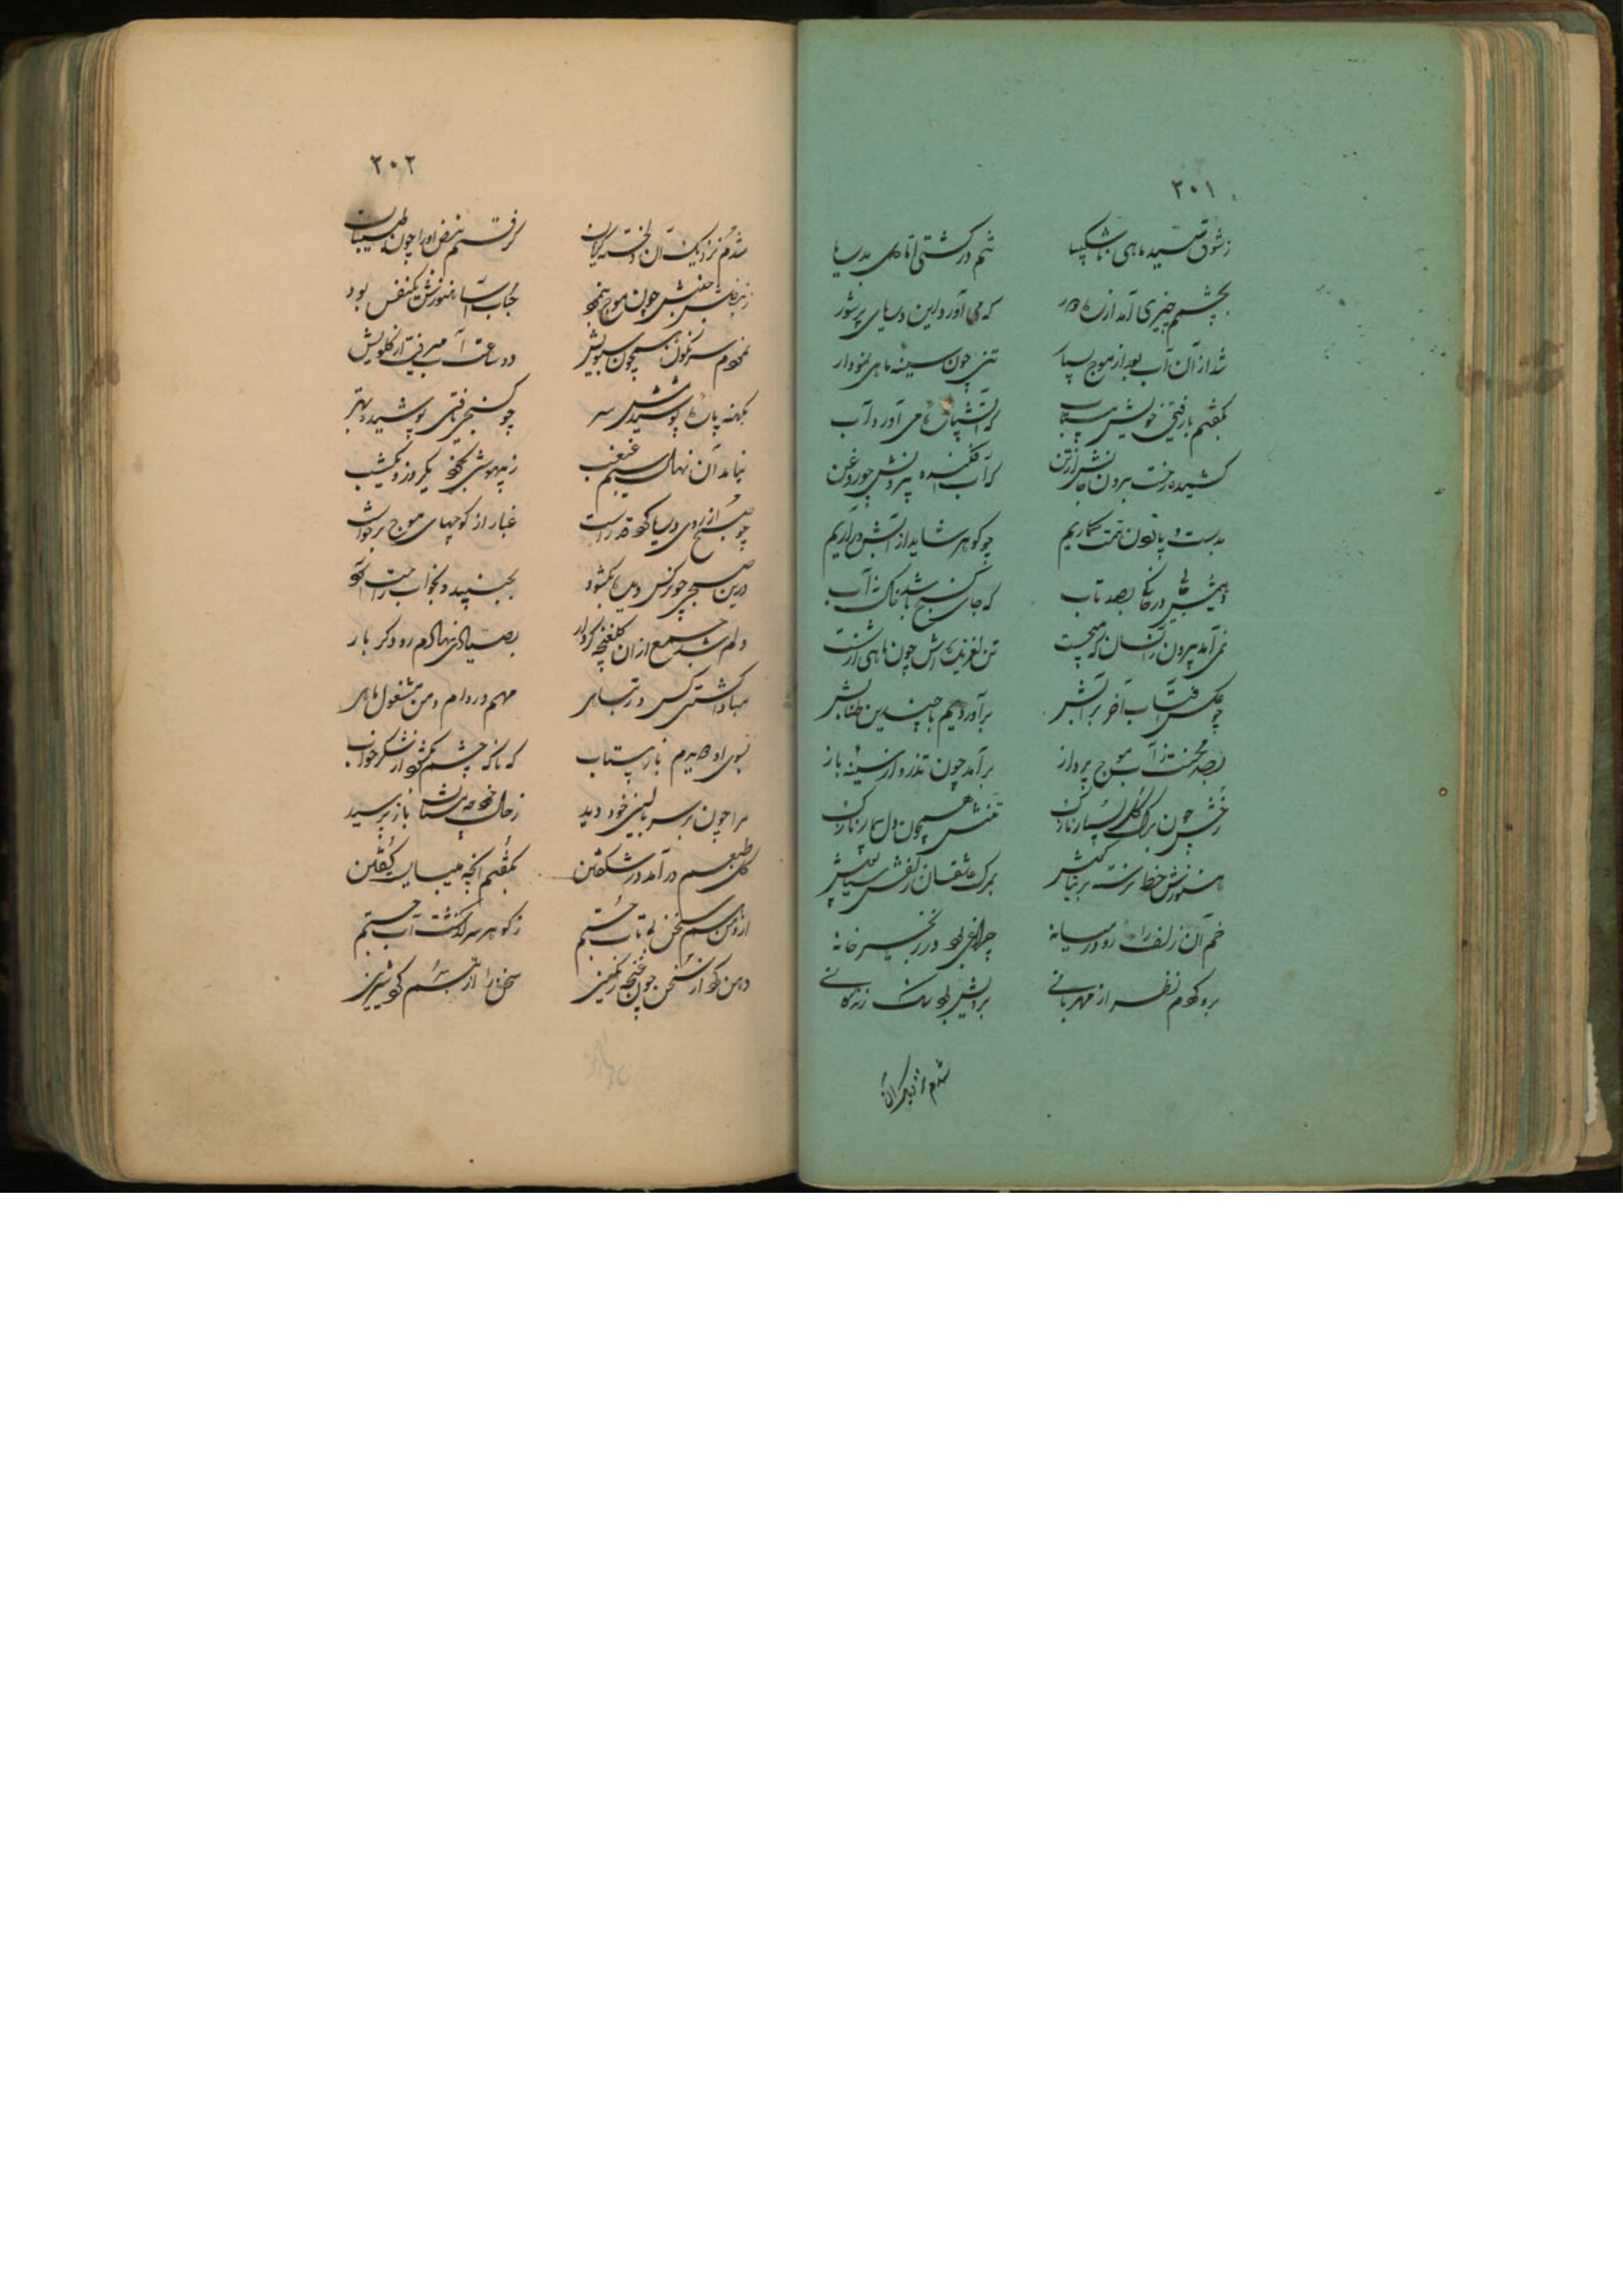 ٢٠١
ز شوق صید ماهی ناشکیبا تنم در کشتی اما دل بدریا
بچشمم چیزی آمد از که می آورد این دریای پرشور
شد از آن آب بعد از موج بسیار تنی چون سینه ماهی نمودار
بگفتم با رفیق خویش بشتاب که می آورد آب
کشیده رخت بیرون جانش از تن که آب افکنده بیرونش چو روغن
بدست و پا کنون همت گماریم چو گوهر شاید از آبش برآریم
بصد تاب که جای گنج باشد خاک نه آب
نمی آمد برون زانسان که میجست تن لغزنده اش چون ماهی از شست
چو عکس آفتاب آخر برآتش برآوردیم با چندین طنابش
بصد محنت ز آب موج پرداز برآمد چون تذرو از سینه باز
رخش چون برگ گل بسیار نازک تنش همچون دل بیمار نازک
هنوزش خط نرسته بر بناگوش بمرگ عاشقان زلفش سیاه پوش
خم آن زلف را رو در میانه چراغی بود در زنجیر خانه
برو کردم نظر از مهربانی برویش بود رنگ زندگانی
شدم نزدیک آن
٢٠٢
شدم نزدیک آن لخت گریان گرفتم نبض او را چون طبیبان
ز نبضش جنبشی چون موج بنمود حباب آسا هنوزش یکنفس بود
نمودم سرنگون همچون سبویش دو ساعت آب میرفت از گلویش
بکهنه پاره پوشیدمش سر چو گنجی یافتی پوشیده بهتر
نیامد آن نهال سیم غبغب ز بیهوشی بخود یکروز و یکشب
چو صبح از روی دریا کرد قد راست غبار از کوچهای موج برخواست
درین صبحی چو نرگس دیده بگشود بجنبید و بخواب رفت آسود
دلم شد جمع از آن گلغنچه کردار بصیادی نهادم رو دگر بار
مبادا کشتی کس در تباهی مهم در دام و من مشغول ماهی
بسوی او دویدم باز بیتاب که ناگه چشم بگشود از شکرخواب
مرا چون بر سر بالین خود دید ز حال خود پریشان باز پرسید
گل طبعم درآمد در شکفتن بگفتم آنچه میبایست گفتن
از و من هم سخن بی تاب جستم ز گوهر سرگذشت آب جستم
دهن کرد از سخن چون غنچه رنگین سخن را از تبسم کرد شیرین